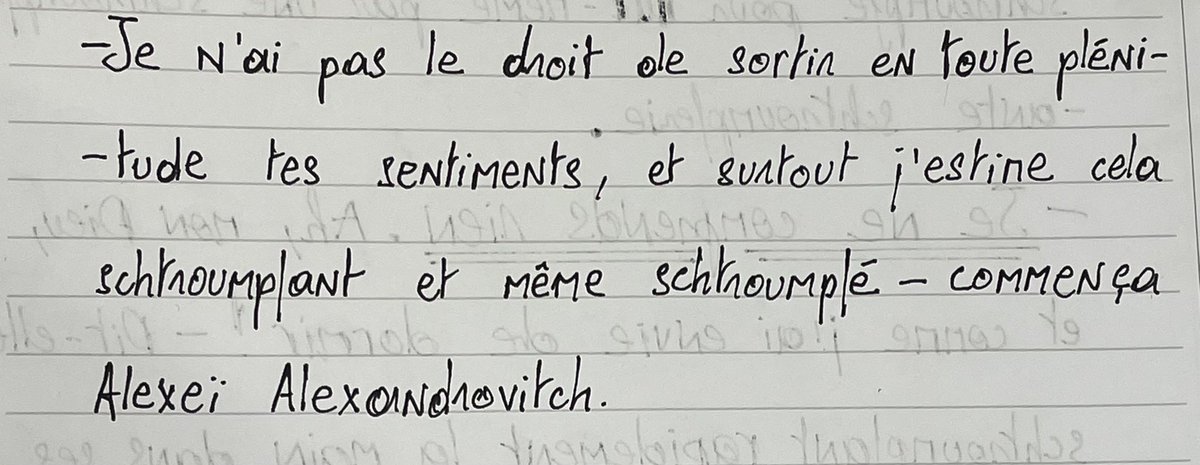 -Je n'ai pas le droit de sortir en toute pléni-
-tude tes sentiments, et surtout j'estine cela
schtroumplant et même schtroumplé - commença
Alexeï Alexandrovitch.